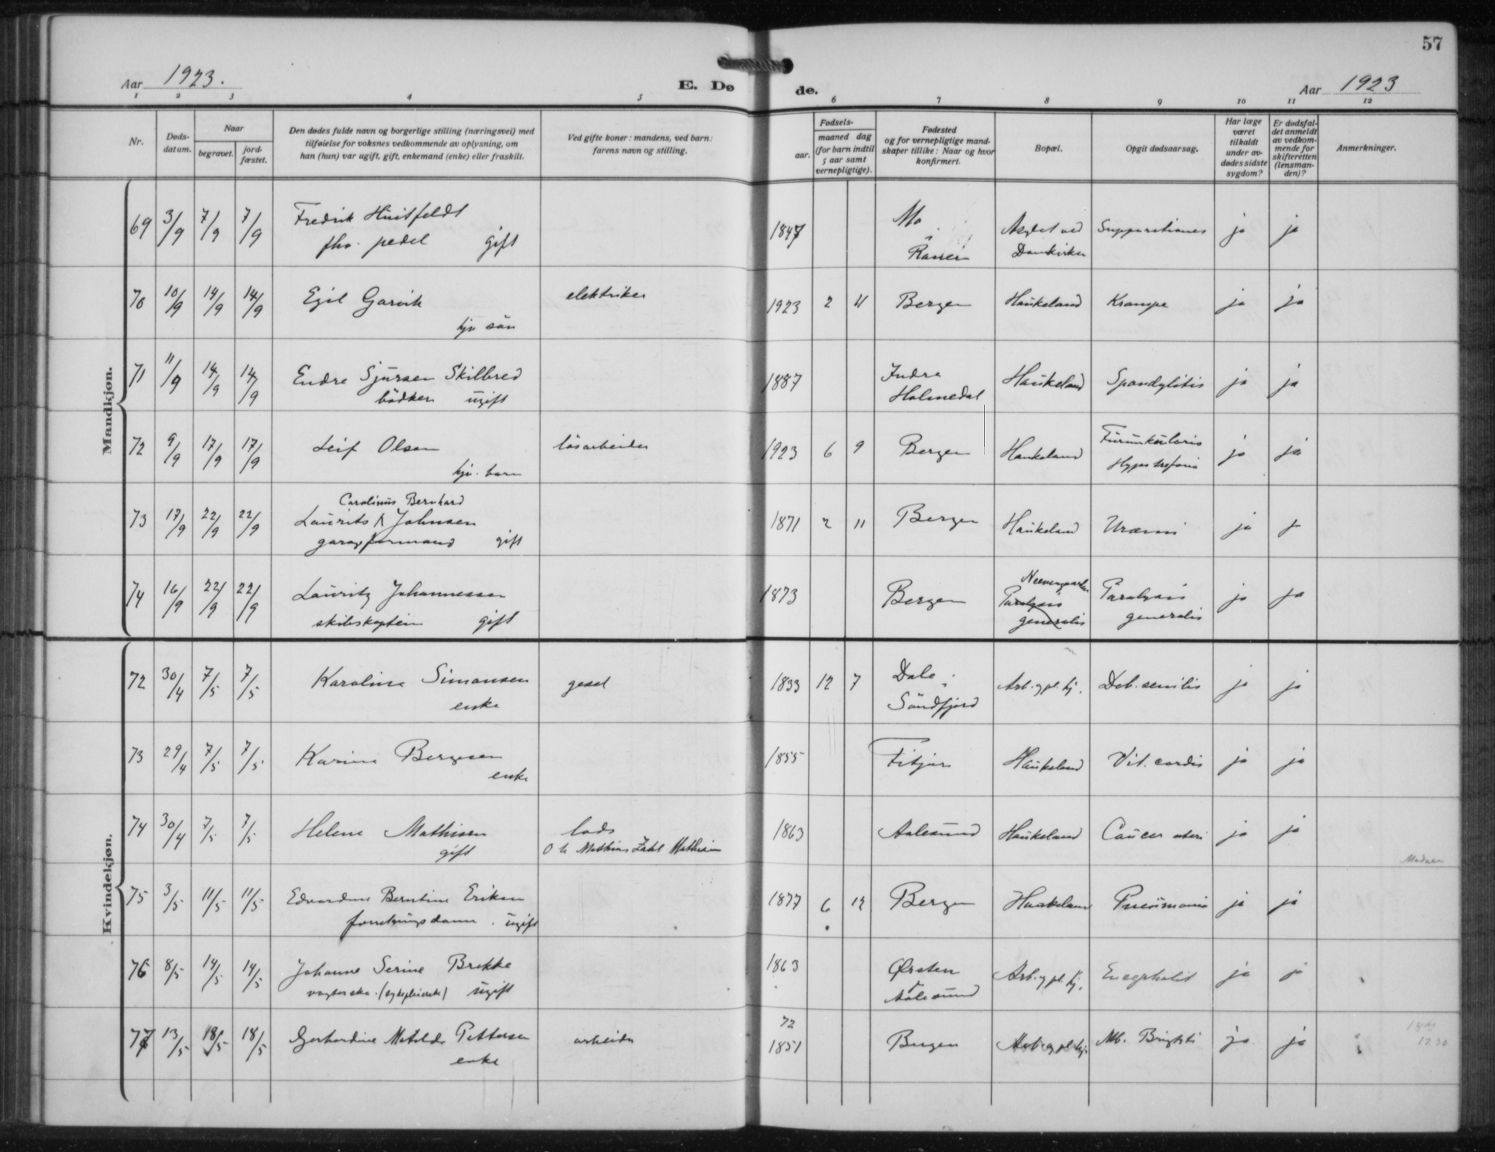 57
Aar 1923.
E. Døde.
Aar 1923
1 2 3 4 5 6 7 8 9 10 11 12
Nr.
Døds-
datum.
Naar
begravet.
jord-
fæstet.
Den dødes fulde navn og borgerlige stilling (næringsvei) med
tilføielse for voksnes vedkommende av oplysning, om
han (hun) var ugift, gift, enkemand (enke) eller fraskilt.
Ved gifte koner: mandens, ved barn:
farens navn og stilling.
Fødsels-
aar.
maaned dag
(for barn indtil
5 aar samt
vernepligtige).
Fødested
og for vernepligtige mand-
skaper tillike: Naar og hvor
konfirmert.
Bopæl.
Opgit dødsaarsag.
Har læge
været
tilkaldt
under av-
dødes sidste
sygdom?
Er dødsfal-
det anmeldt
av vedkom-
mende for
skifteretten
(lensman-
den)?
Anmerkninger.
Mandkjøn.
69 3/9 7/9 7/9 Fredrik Huitfeldt 1847 Mo Asylet ved ja ja
fhv. pedel gift Ranen Domkirken
70 10/9 14/9 14/9 Egil Garvik elektriker 1923 2 4 Bergen Haukeland Krampe ja ja
sön
71 11/9 14/9 14/9 Endre Sjursen Skilbred 1887 Indre Haukeland Spondylitis ja ja
bödker ugift Holmedal
72 9/9 17/9 17/9 Leif Olsen lösarbeider 1923 6 9 Bergen Haukeland ja ja
barn
73 17/9 22/9 22/9 Carolinus Bernhard
Laurits Johnsen 1871 2 11 Bergen Haukeland Uræmi ja
gift
74 16/9 22/9 22/9 Lauritz Johannessen 1873 Bergen Paralysis Paralysis ja ja
skibskaptein gift generalis generalis
Kvindekjøn.
72 30/4 7/5 7/5 Karoline Simonsen 1833 12 7 Dale i Arb. og pl. hj. Deb. senilis ja ja
enke Söndfjord
73 29/4 7/5 7/5 Karine Bergesen 1855 Fitjar Haukeland Vit. cordis ja ja
enke
74 30/4 7/5 7/5 Helene Mathisen lods 1863 Aalesund Haukeland Cancer uteri ja ja
gift
75 3/5 11/5 11/5 Edvardine Berntine Eriksen 1877 6 12 Bergen Haukeland Pneumonia ja ja
forretningsdame. ugift
76 8/5 14/5 14/5 Johanne Serine Brekke 1863 Ørsten Arb. og pl. hj. ja
ugift Aalesund
77 13/5 18/5 18/5 Gerhardine Matilde Pettersen arbeider 72 1851 Bergen Arb. og pl. hj. Mb. Brightii ja ja
enke